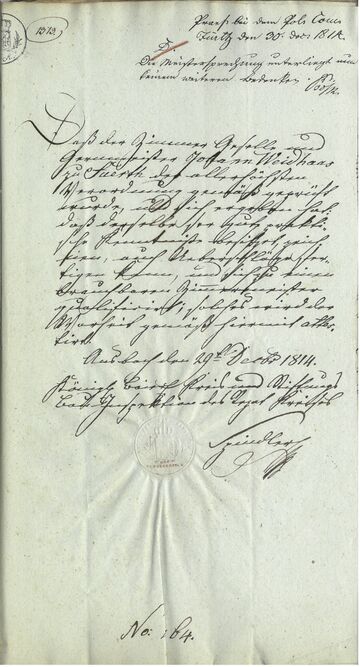 1313
Praes: bei dem Pols Com
Fürth den 30. Dec. 1814.
Die Meistersprechung unterliegt nun
keinem weiteren Bedenken.
Daß der Zimmer Geselle und
Germeister Johann Weidhaas
zu Fuerth der allerhöchsten
Verordnung gemäß geprüft
wurde, und sich ergeben hat,
daß derselbe sehr gute prakti-
sche Kenntniße besitzet, zeich-
nen, auch Ueberschläge fer-
tigen kann, und sich zu einem
brauchbaren Zimmermeister
qualifiziret; solches wird der
Warheit gemäß hiermit attes-
tirt.
Ansbach den 29t Decbr 1814.
Königl. Baier. Kreis und Stiftungs
Bau Inspektion des Rezat Kreises
Spindler
No: 164.